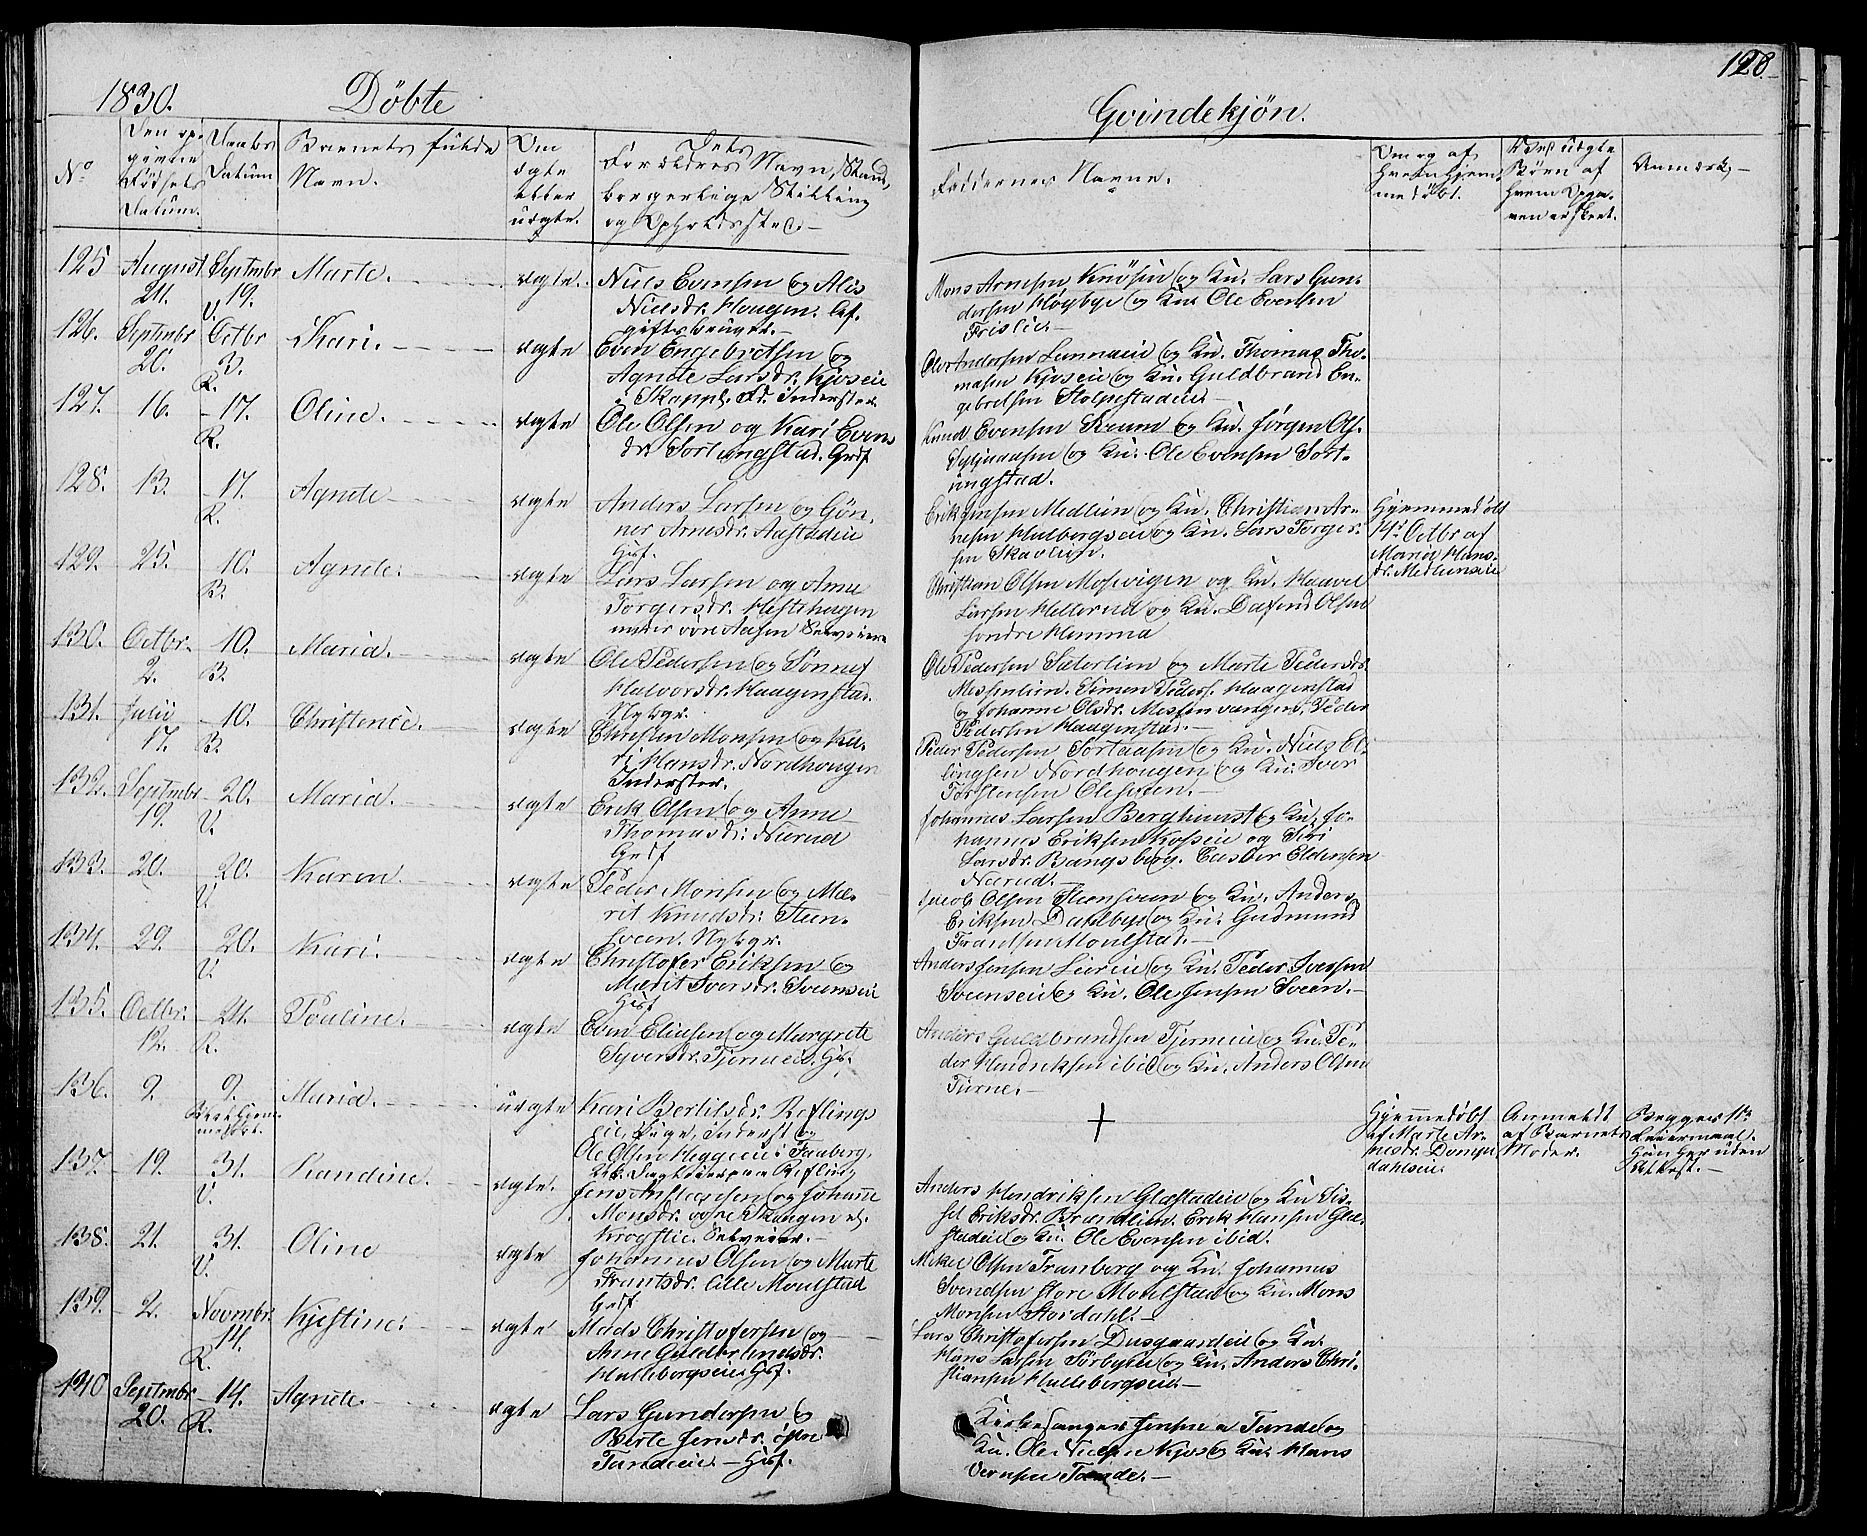 1830. Döbte Qvindekjøn. 128
No
Den op-
givne
Fødsels
Datum.
Daabs
Datum
Barnets fulde
Navn.
Om
ægte
eller
uægte.
Dets
Forældres Navn, Stand,
borgerlige Stilling
og Opholdssted.
Faddernes Navne.
Om og af
hvem hjem-
medöbt.
Ved uægte
Børn af
hvem Opga-
ven er skeet.
Anmærk.
125 August 24. Septmbr 19. V. Marte. ægte. Niels Evensen og Alis
Nielsdr. Hougen. Af-
giftsbruger.
Mons Arnesen Knösen og Ku. Lars Gun-
dersen Høgbye og Ku. Ole Evensen
Frislie.
126. Septmbr 26. Octbr 3. R. Kari. ægte Even Engebretsen og
Agnete Larsdr. Kjoseie
Inderster.
Ole Andersen Lunnaeie og Ku. Thomas Tho-
masen Kjoseie og Ku. Guldbrand En-
gebretsen Stolpestadeie
127. 16. 17. R. Oline. ægte Ole Olsen og Kari Evens
dr. Sortungstad. Grdf
Knud Evensen Krum og Ku. Jørgen Ols.
og Ku. Ole Evensen Sort-
ungstad.
128. 13. 17. R. Agnete ægte Anders Larsen og Gön-
ner Arnesdr. Austadeie
Husf.
Erik Jensen Medlien og Ku. Christian Ar-
nesen Hulbergseie og Ku. Lars Torger-
sen Skavlien.
Hjemmedøbt
14de Octbr af
Maria Hans-
dr. Medlienseie
129. 25. 10. B. Agnete. ægte Lars Larsen og Anne
Torgersdr. Hestehagen
under övre Aasen Selveier
Christian Olsen Mosevigen og Ku. Haavel
Larsen Hellerud og Ku. Dafend Olsen
søndre Hemma
130. Octbr. 2. 10. B. Maria. ægte Ole Pedersen og Sønnef
Halvorsdr. Haagenstad.
Nybgr.
Ole Pedersen Sæterlien og Marte Pedersdr.
Messenlien. Simen Peders. Haagenstad
og Johanne Olsdr. Messenvangen, Peder
Pedersen Haagenstad.
131. Julii 17. 10. B. Christence. ægte Christen Monsen og Ka-
ri Hansdr. Nordhougen
Inderster.
Peder Pedersen Sortaasen og Ku. Niels El-
lingsen Nordhougen og Ku. Iver
Torstensen Olestuen.
132. Septmbr 19. 20. V. Maria. ægte Erik Olsen og Anne
Thomasdr. Narud
Grdf
Johannes Larsen Berghaust og Ku. Jo-
hannes Eriksen Kosseie og Siri
Larsdr. Bangsberg. Casber Eldensen
Narud.
133. 20. 20. V. Karen. ægte Peder Monsen og Mæ-
rit Knudsdr. Steen-
sveen. Nybgr.
Jacob Olsen Steensveen og Ku. Anders
Eriksen Dahlbye og Ku. Gudmund
Frandsen Moulstad.
134. 29. 20. V. Kari. ægte Christofer Eriksen og
Mærit Iversdr. Sveenseie
Husf
Anders Jensen Lieeie og Ku. Peder Iversen
Sveenseie og Ku. Ole Jensen Sveen.
135. Octbr. 12. 24. R. Pouline. ægte Even Eliesen og Margrete
Syversdr. Tjerneeie. Husf.
Anders Guldbrandsen Tjerneeie og Ku. Pe-
der Hendriksen ibid og Ku. Anders Olsen
Turne.
136. 9. 9. Maria. uægte Kari Bertilsdr. Reflings
eie, Pige, Inderst og
Ole Olsen Heggeeie i Fauberg,
Hjemmedøbt
af Marte Ar-
nesdr. Dompe
dahlseie
Anmeldt
af Barnets
Moder.
Begges 1te
Leiermaal.
Hun her uden
Attest.
137. 19. 31. V. Randine. ægte. Jens Anstensen og Johanne
Monsdr. øvre Skougen el.
Krogstie. Selveier.
Anders Hendriksen Glæstadeie og Ku Sis-
sel Eriksdr. Brændlien. Erik Hansen Glæ-
stadeie og Ku. Ole Evensen ibid.
138. 21. 31. V. Oline ægte Johannes Olsen og Marte
Frantsdr. lille Moulstad
Grdf
Mikel Olsen Tranberg og Ku. Johannes
Svendsen store Moulstad og Ku. Mons
Monsen Stordahl.
139. 2. Novmbr. 14. R. Kjestine. ægte Mads Christofersen og
Anne Guldbrandsdr.
Hullebergseie. Husf.
Lars Christofersen Dusgaardeie og Ku.
Hans Larsen Sörbyeie og Ku. Anders Chri-
stiansen Hullebergseie.
140 Septmbr 20. 14. R. Agnete. ægte Lars Gundersen og
Berte Jensdr. östre
Tandeeie. Husf.
Kirkesanger Jensen a Tande og
Ku. Ole Nielsen Kjos og Ku. Hans
Tande.